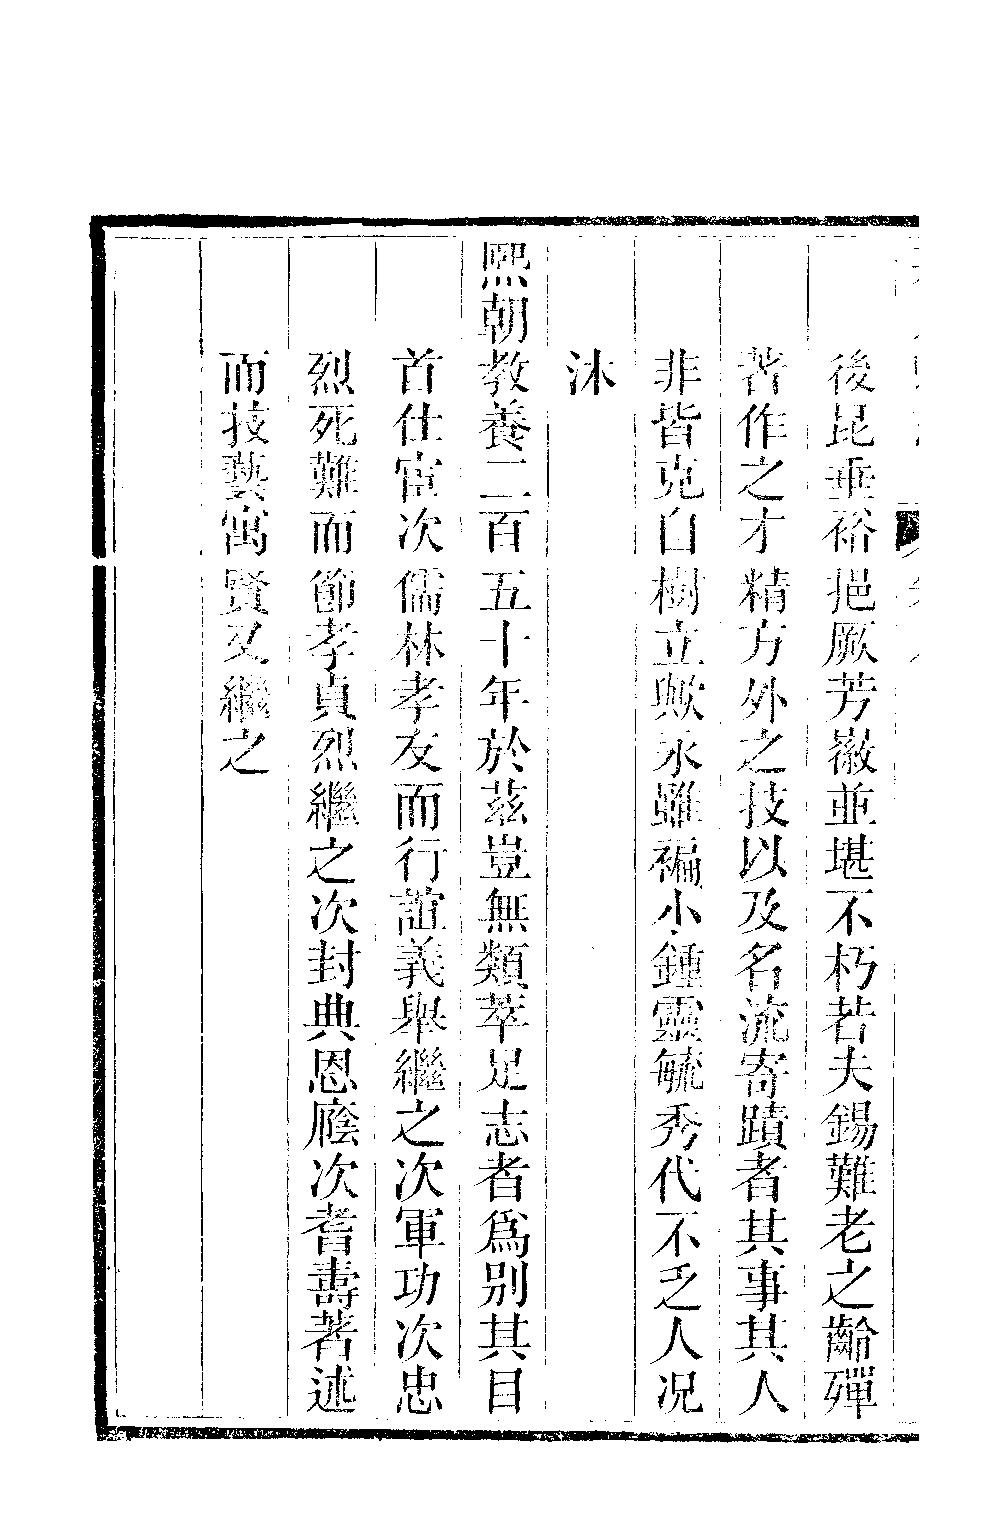 後昆垂裕挹厥芳徽並堪不朽若夫錫難老之齡殫
著作之才精方外之技以及名流寄蹟者其事其人
非皆克自樹立歟永雖褊小鍾靈毓秀代不乏人况
沐
熙朝教養二百五十年於茲豈無類萃足志者爲別其目
首仕宦次儒林孝友而行誼義舉繼之次軍功次忠
烈死難而節孝貞烈繼之次封典恩廕次耆壽著述
而技藝寓賢又繼之